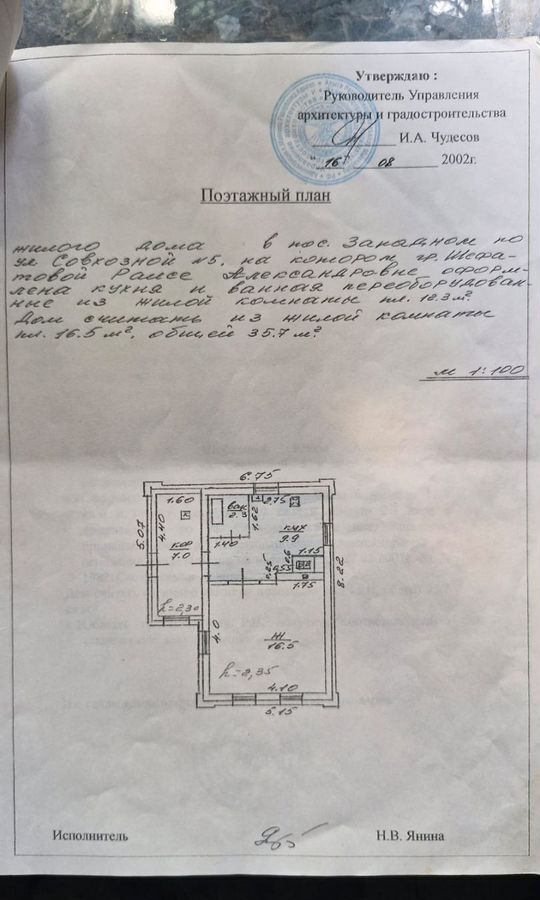 Утверждаю :
Руководитель Управления
архитектуры и градостроительства
И.А. Чудесов
"16" 08 2002г.
Поэтажный план
жилого дома в пос. Западном по
ул Совхозной №5, на котором гр. Шефа-
товой Раисе Александровне оформ-
лена кухня и ванная переоборудован-
ные из жилой комнаты пл. 12.3 м²
Дом считать из жилой комнаты
пл. 16.5 м², общей 35.7 м²
м 1:100
6.75
1.60
ван
2.3
2,75
1.62
5.07
4.40
кор
7.0
1.40
кух
9.9
8.22
1.15
0.55
1.75
h=2,30
4.0
жк
16.5
h=2,35
4.10
5.15
Исполнитель
Н.В. Янина